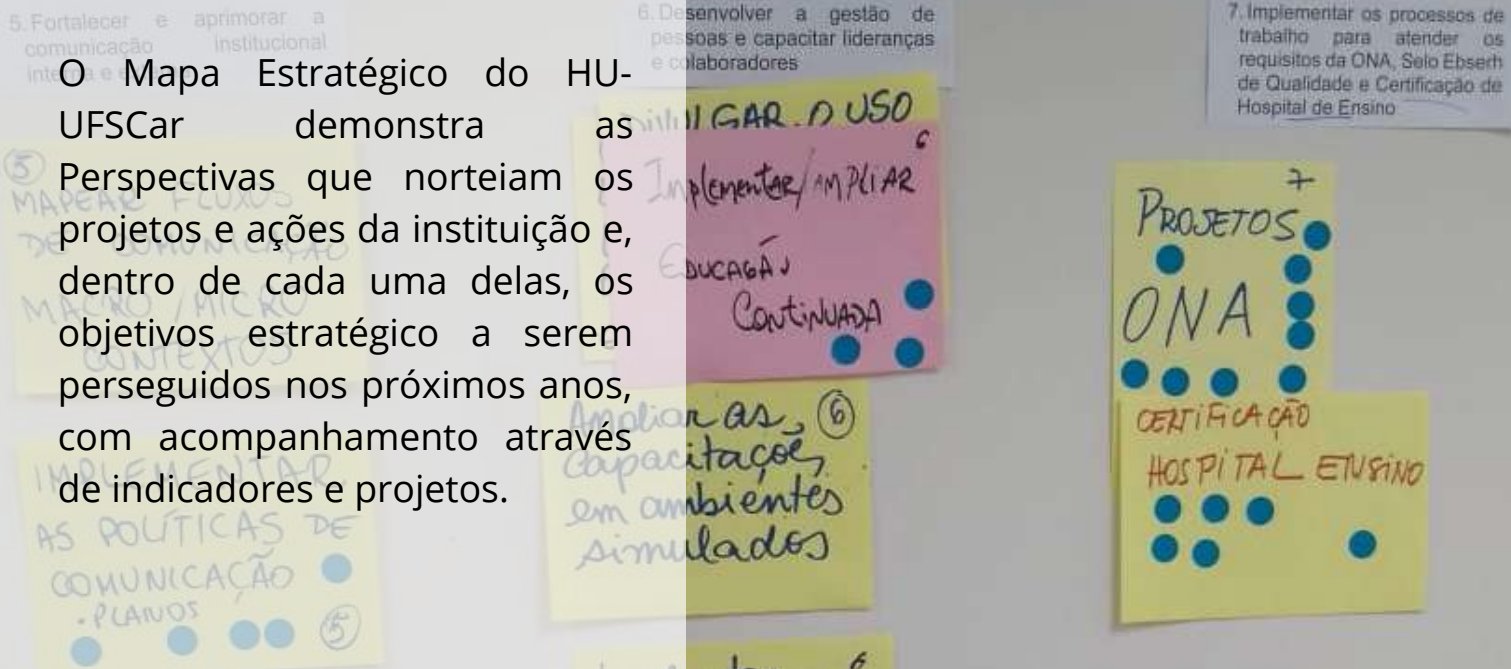 5. Fortalecer e aprimorar a
comunicação institucional
interna e
O Mapa Estratégico do HU-
UFSCar demonstra as
Perspectivas que norteiam os
projetos e ações da instituição e,
dentro de cada uma delas, os
objetivos estratégico a serem
perseguidos nos próximos anos,
com acompanhamento através
de indicadores e projetos.
5
MAPEAR FLUXOS
DE COMUNICAÇÃO
MACRO / MICRO
CONTEXTOS
IMPLEMENTAR
AS POLÍTICAS DE
COMUNICAÇÃO
• PLANOS
5
6. Desenvolver a gestão de
pessoas e capacitar lideranças
e colaboradores
DIVULGAR O USO
6
Implementar/AMPLIAR
EDUCAÇÃO
CONTINUADA
Ampliar as 6
capacitações
em ambientes
simulados
6
7. Implementar os processos de
trabalho para atender os
requisitos da ONA, Selo Ebserh
de Qualidade e Certificação de
Hospital de Ensino
7
PROJETOS
ONA
CERTIFICAÇÃO
HOSPITAL ENSINO